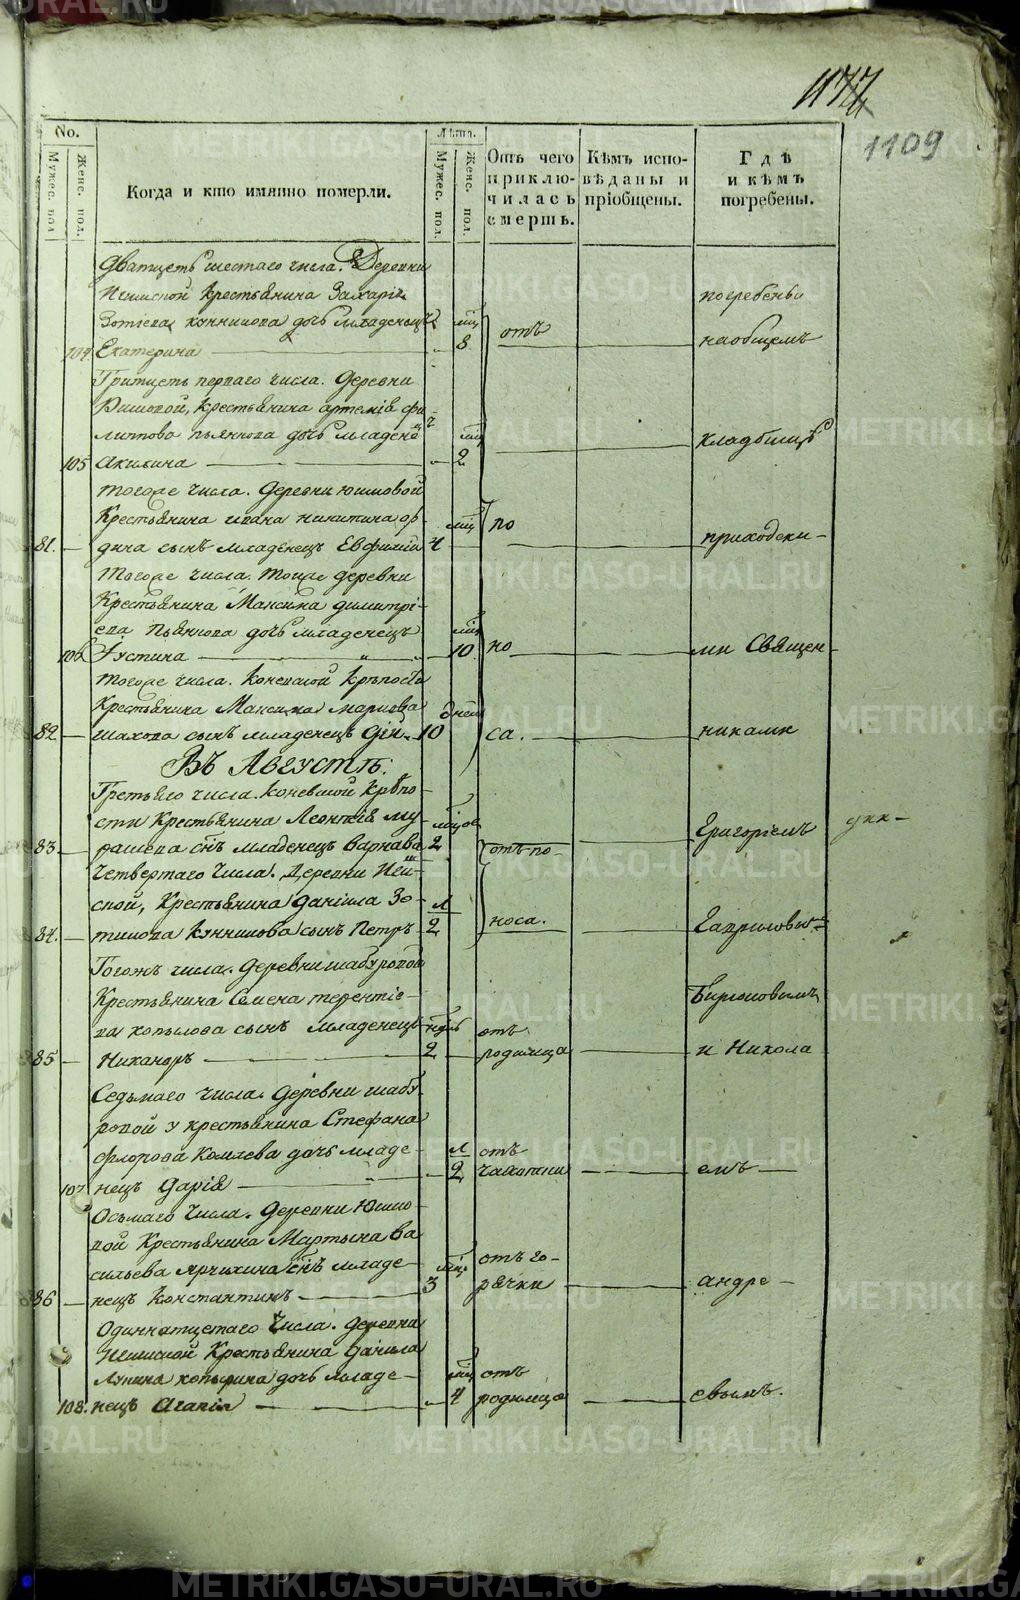 1177
1109
No.
Мужес. пол.
Женс. пол.
Когда и кто имянно померли.
Лѣта.
Мужес. пол.
Женс. пол.
Отъ чего приклю-чилась смерть.
Кѣмъ испо-вѣданы и пріобщены.
Гдѣ и кѣмъ погребены.
дватцеть шестаго числа. Деревни
крестьянина Захарія
дочь младенецъ
104 Екатерина мц 8
отъ
погребены
на общемъ
Тритцеть перваго числа. Деревни
крестьянина артемія фи
липпова пьянкова дочь младене
105 Акилина мц 2
кладбищѣ
тогоже числа. деревни юшмовой
Крестьянина ивана никитина
81. дина сынъ младенецъ Евфимій мц 4
по
приходски-
тогоже числа. тойже деревни
Крестьянина Максима димитрі-
ева пьянкова дочь младенецъ
106 Іустина мц 10
но
ми Священ-
тогоже числа. Коневской крѣпости
Крестьянина Максима маркова
82 шахова сынъ младенецъ дней 10
са.
никами
Въ Августѣ:
Третьяго числа. Коневской Крѣпо-
сти Крестьянина Леонтія му
83. рашева снъ младенецъ варнава 2
отъ по-
Григоріемъ
Четвертаго числа. Деревни
ской, Крестьянина даніила Зо-
84. сынъ Петръ л 2
носа.
Гавриловы
Тогожъ числа. деревни шабуровой
Крестьянина Семена терентіе-
ва копылова сынъ младенецъ
85 Никаноръ 2
отъ
родимца
Бирюковымъ
и Никола
Седьмаго числа. деревни шабу-
ровой у крестьянина Стефана
флорова Комлева дочь младе-
107 нецъ Дарія л 2
отъ
чахотки
емъ
Осьмаго числа. деревни Юшмо-
вой Крестьянина Мартына ва
сильева Ярчихина снъ младе-
86 нецъ Константинъ мц 3
отъ го-
рячки
андре-
Одиннатцетаго числа. деревни
Крестьянина данила
Лукина копырина дочь младе-
108. нецъ Агапія мц 4
отъ
родимца
евымъ.
METRIKI.GASO-URAL.RU